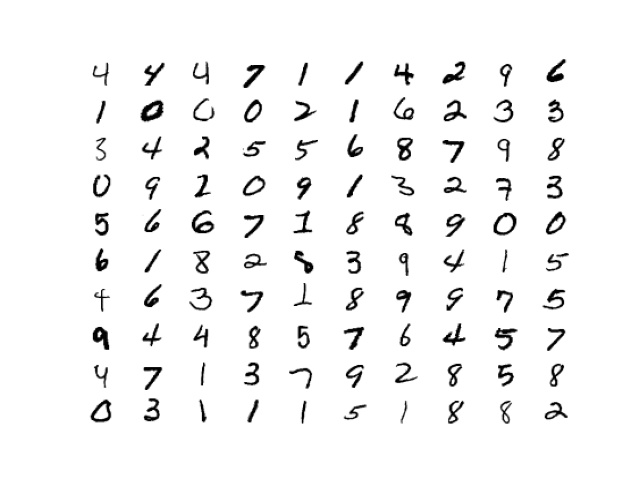 4 4 4 7 1 1 4 2 9 6
1 0 0 0 2 1 6 2 3 3
3 4 2 5 5 6 8 7 9 8
0 9 2 0 9 1 3 2 7 3
5 6 6 7 1 8 8 9 0 0
6 1 8 2 8 3 9 4 1 5
4 6 3 7 1 8 9 9 7 5
9 4 4 8 5 7 6 4 5 7
4 7 1 3 7 9 2 8 5 8
0 3 1 1 1 5 1 8 8 2